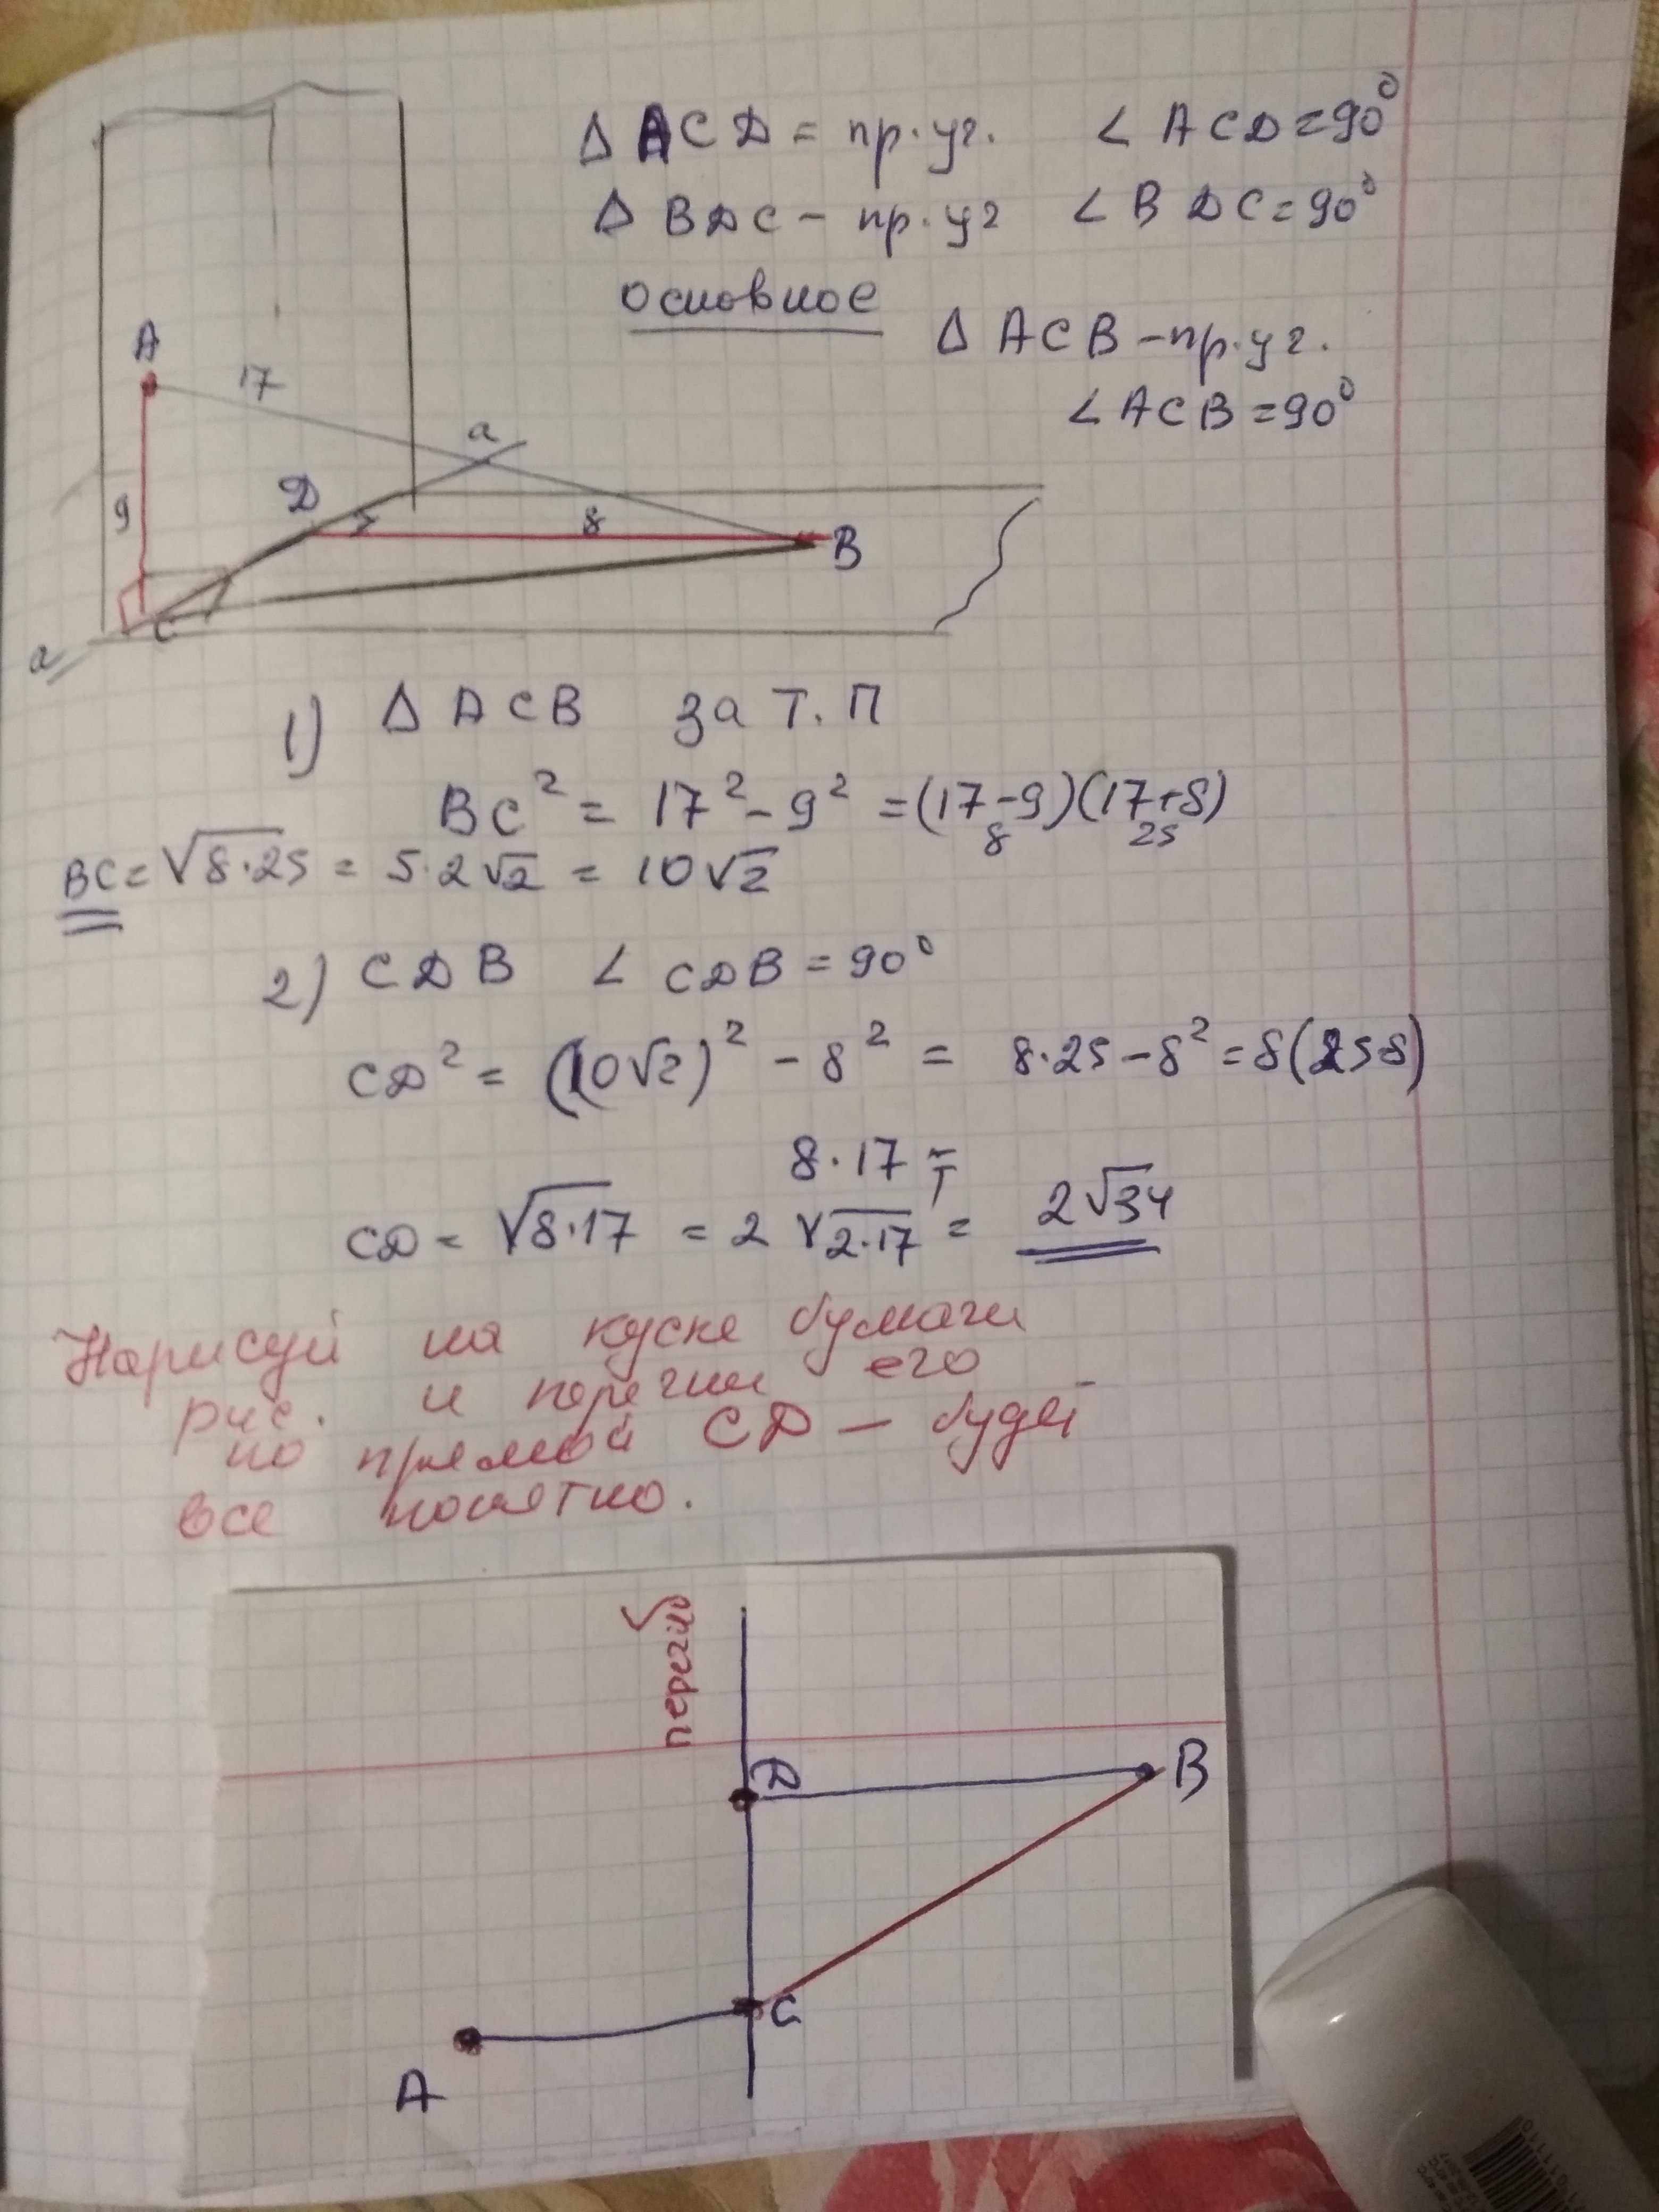 Δ ACD = пр.уг. ∠ ACD = 90°
Δ BDC - пр.уг ∠ BDC = 90°
основное
Δ ACB - пр.уг.
∠ ACB = 90°
A
17
a
D
9
8
B
C
a
1) Δ ACB за Т.П
BC² = 17² - 9² = (17-9)(17+8)
8 25
BC = √8·25 = 5·2√2 = 10√2
2) CDB ∠ CDB = 90°
CD² = (10√2)² - 8² = 8·25 - 8² = 8(25-8)
8·17 =
CD = √8·17 = 2 √2·17 = 2√34
Нарисуй на куске бумаги
рис. и перегни его
по прямой CD - будет
все понятно.
перегиб
D
B
C
A